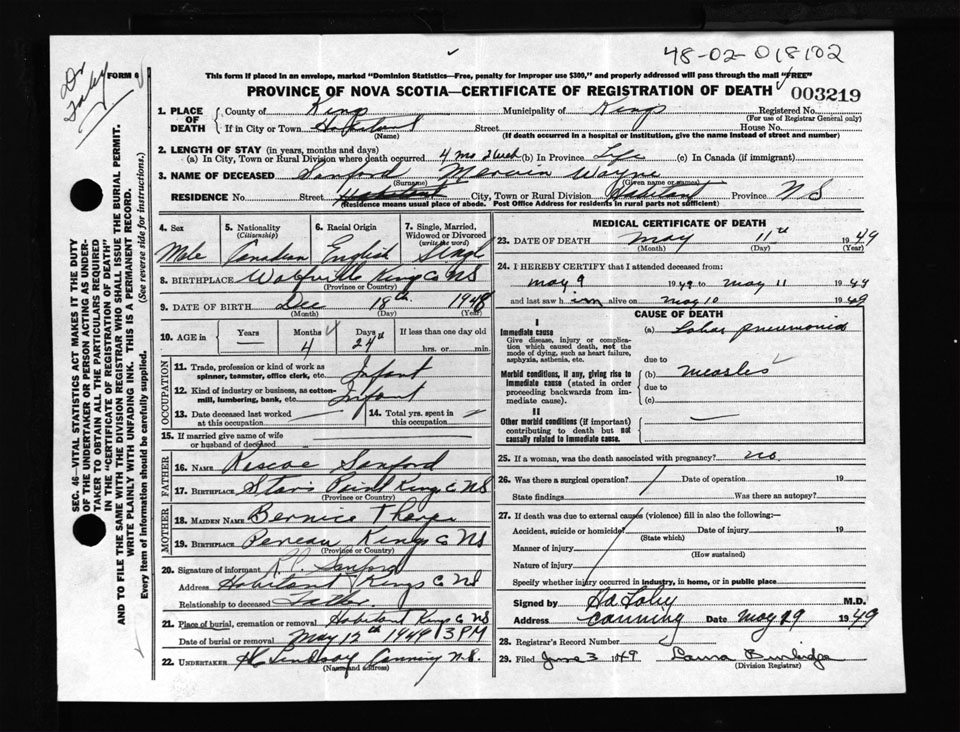 48-02-018102
Dr Foley
FORM 6
This form if placed in an envelope, marked "Dominion Statistics—Free, penalty for improper use $300," and properly addressed will pass through the mail "FREE"
PROVINCE OF NOVA SCOTIA—CERTIFICATE OF REGISTRATION OF DEATH
003219
1. PLACE OF DEATH County of Kings Municipality of Kings Registered No.
(For use of Registrar General only)
If in City or Town Habitant Street House No.
(Name) (If death occurred in a hospital or institution, give the name instead of street and number)
2. LENGTH OF STAY (in years, months and days)
(a) In City, Town or Rural Division where death occurred 4 mo 3 wk (b) In Province Life (c) In Canada (if immigrant)
3. NAME OF DECEASED Sanford Mervin Wayne
(Surname) (Given name or names)
RESIDENCE No. Street Habitant City, Town or Rural Division Habitant Province N S
(Residence means usual place of abode. Post Office Address for residents in rural parts not sufficient)
SEC. 46—VITAL STATISTICS ACT MAKES IT THE DUTY
OF THE UNDERTAKER OR PERSON ACTING AS UNDER-
TAKER TO OBTAIN ALL THE PARTICULARS REQUIRED
IN THE "CERTIFICATE OF REGISTRATION OF DEATH"
AND TO FILE THE SAME WITH THE DIVISION REGISTRAR WHO SHALL ISSUE THE BURIAL PERMIT.
WRITE PLAINLY WITH UNFADING INK. THIS IS A PERMANENT RECORD.
Every item of information should be carefully supplied. (See reverse side for instructions.)
4. Sex 5. Nationality 6. Racial Origin 7. Single, Married,
(Citizenship) Widowed or Divorced
(write the word)
Male Canadian English Single
8. BIRTHPLACE Wolfville Kings Co NS
(Province or Country)
9. DATE OF BIRTH Dec 18th 1948
(Month) (Day) (Year)
10. AGE in Years Months Days If less than one day old
4 24 hrs. or min.
OCCUPATION
11. Trade, profession or kind of work as
spinner, teamster, office clerk, etc. Infant
12. Kind of industry or business, as cotton-
mill, lumbering, bank, etc. Infant
13. Date deceased last worked at this occupation 14. Total yrs. spent in this occupation
15. If married give name of wife
or husband of deceased
FATHER
16. NAME Roscoe Sanford
17. BIRTHPLACE Starrs Point Kings Co NS
MOTHER
18. MAIDEN NAME Bernice
19. BIRTHPLACE Pereau Kings Co NS
(Province or Country)
20. Signature of informant R. Sanford
Address Habitant Kings Co NS
Relationship to deceased Father
21. Place of burial, cremation or removal Habitant Kings Co NS
Date of burial or removal May 12th 1949 3 PM
22. UNDERTAKER Lindsay Canning N.S.
(Name and address)
MEDICAL CERTIFICATE OF DEATH
23. DATE OF DEATH May 11th 1949
(Month) (Day) (Year)
24. I HEREBY CERTIFY that I attended deceased from:
May 9 1949 to May 11 1949
and last saw him alive on May 10 1949
CAUSE OF DEATH
I
Immediate cause (a) Lobar pneumonia
Give disease, injury or complica-
tion which caused death, not the
mode of dying, such as heart failure,
asphyxia, asthenia, etc.
due to
Morbid conditions, if any, giving rise to (b) measles
immediate cause (stated in order due to
proceeding backwards from im-
mediate cause). (c)
II
Other morbid conditions (if important)
contributing to death but not
causally related to immediate cause.
25. If a woman, was the death associated with pregnancy? no.
26. Was there a surgical operation? Date of operation 19
State findings Was there an autopsy?
27. If death was due to external causes (violence) fill in also the following:—
Accident, suicide or homicide? Date of injury 19
(State which)
Manner of injury
(How sustained)
Nature of injury
Specify whether injury occurred in industry, in home, or in public place
Signed by M.D.
Address Canning Date May 29 1949
28. Registrar's Record Number
29. Filed June 3 1949 Laura
(Division Registrar)